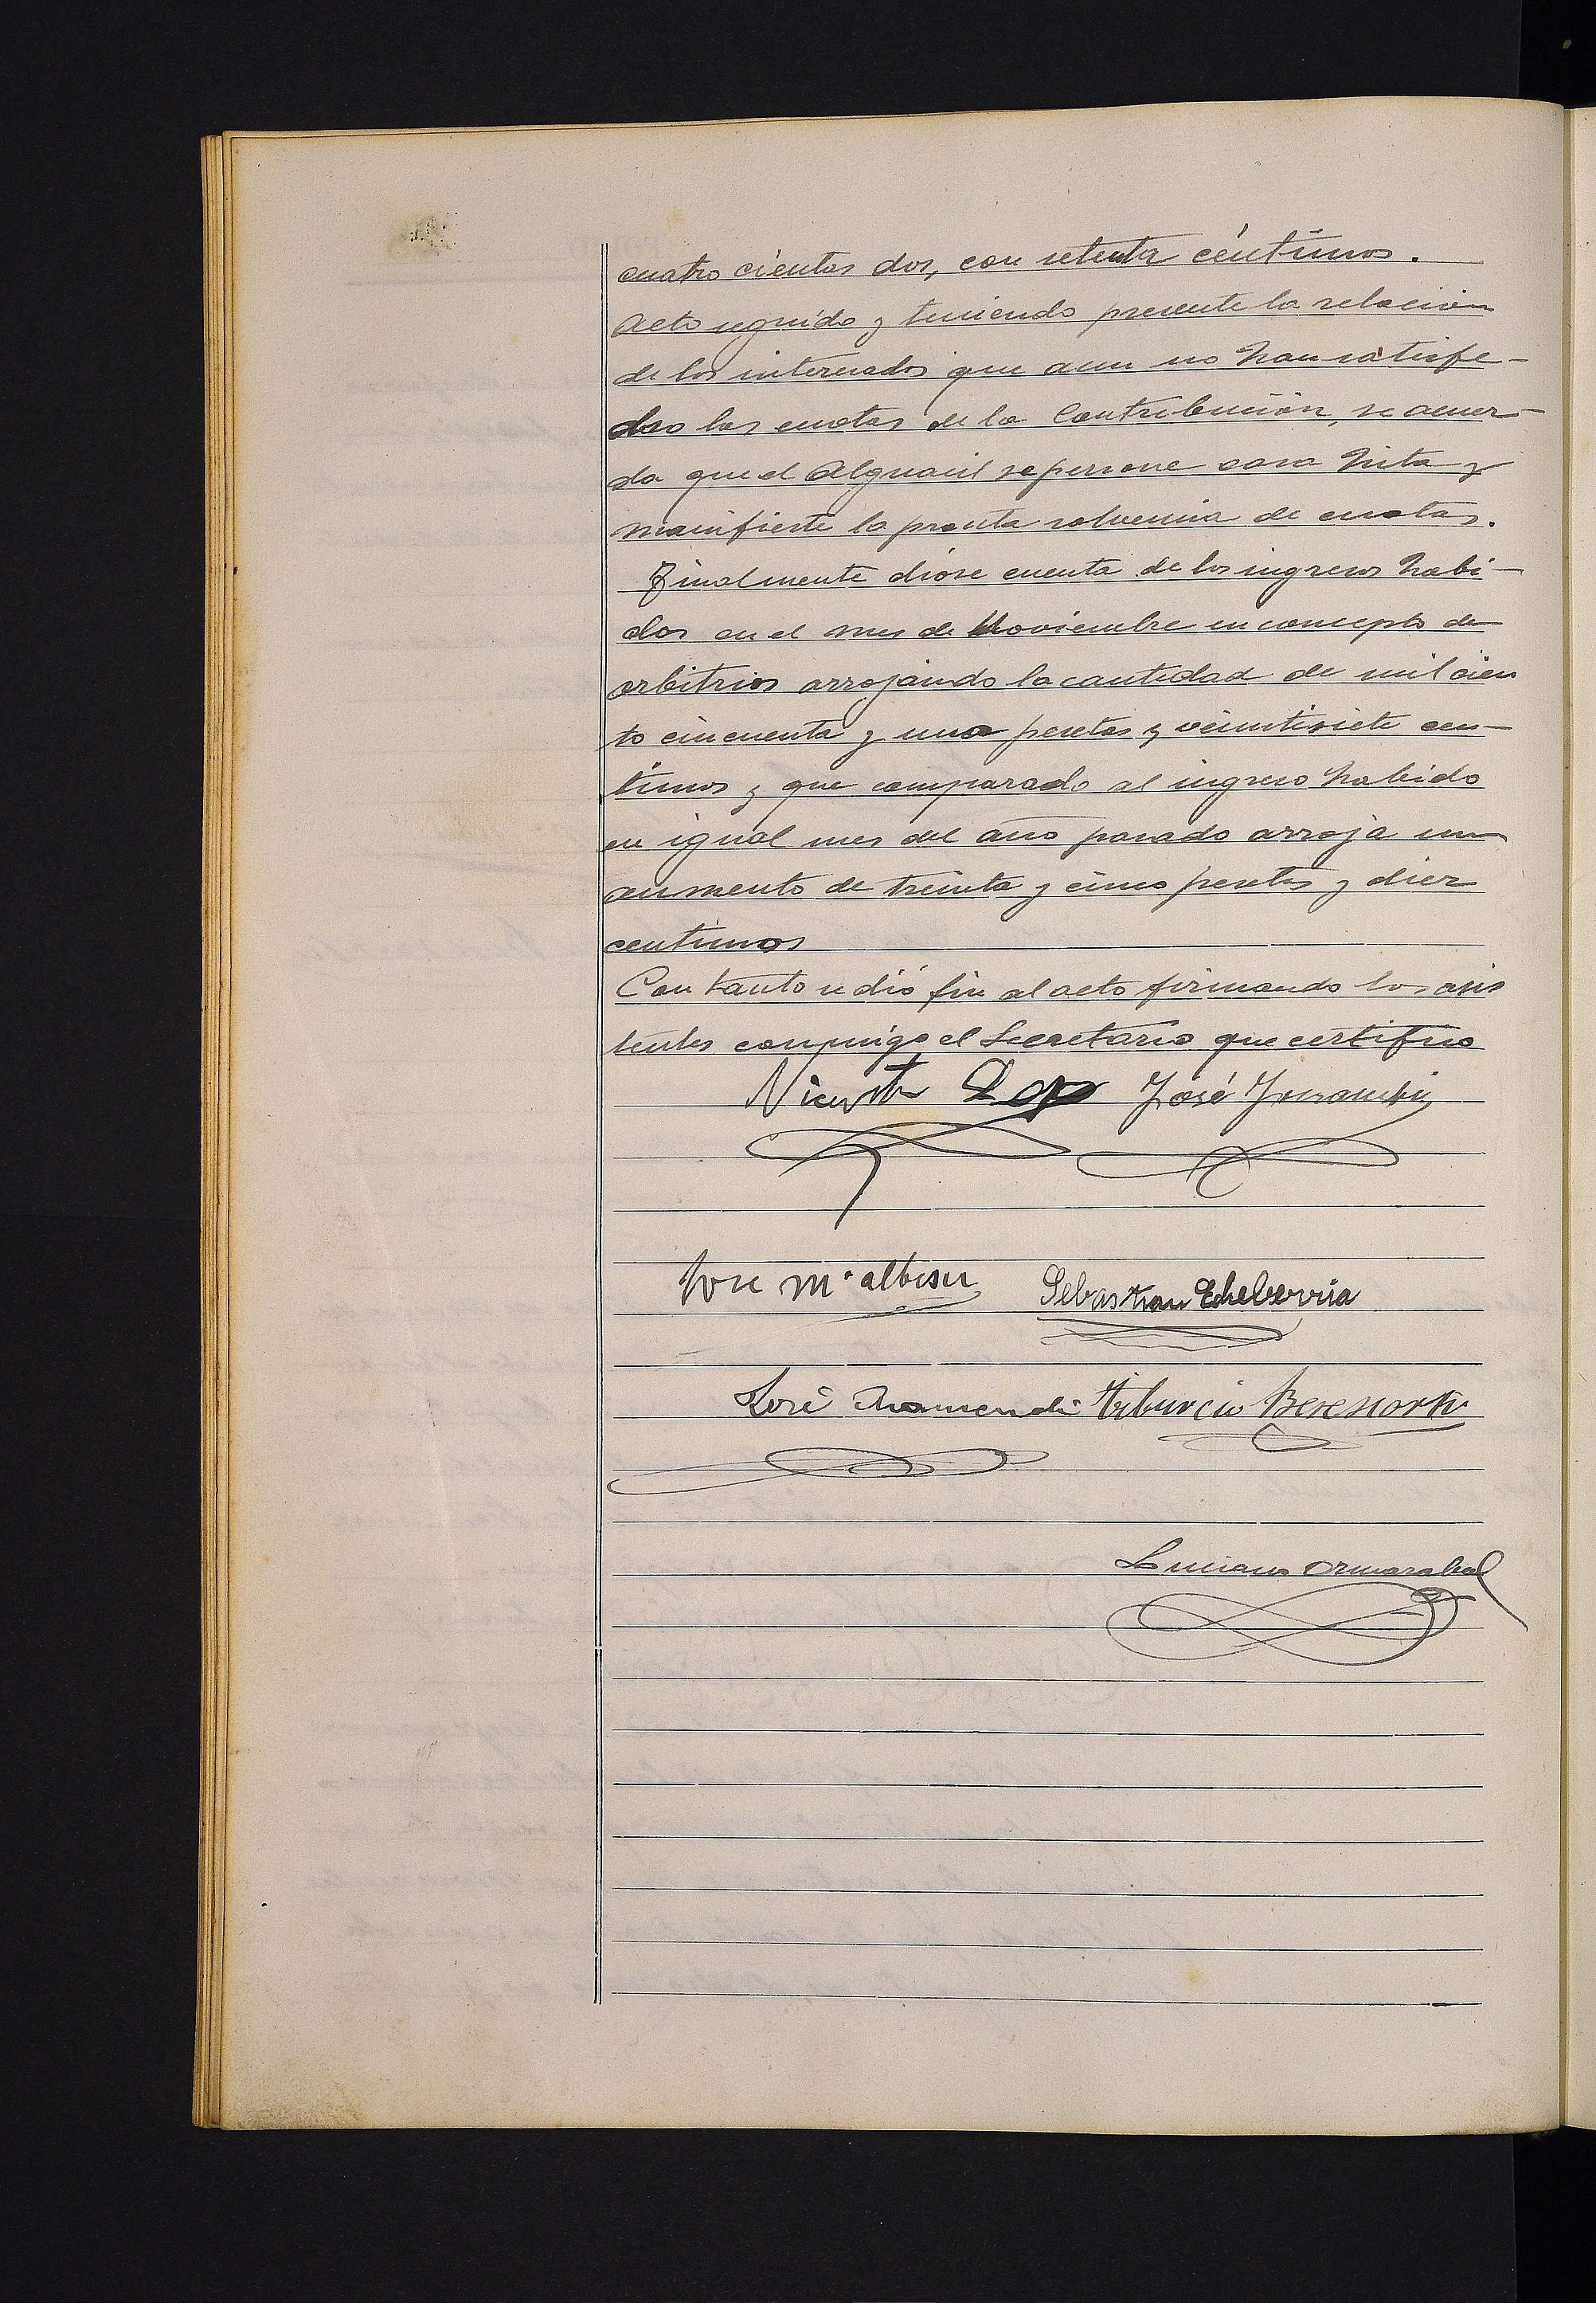 cuatro cientas dos, con setenta céntimos.
Acto seguido y teniendo presente la relación
de los interesados que aun no han satisfe-
cho las cuotas de la Contribución, se acuer-
da que el Alguacil se persone casa hita y
manifieste la pronta solvencia de cuotas.
Finalmente dióse cuenta de los ingresos habi-
dos en el mes de Noviembre en concepto de
arbitrios arrojando la cantidad de mil cien
to cincuenta y una pesetas y veintisiete cen-
timos y que comparado al ingreso habido
en igual mes del año pasado arroja un
aumento de treinta y cinco pesetas y diez
centimos
Con tanto se dió fin al acto firmando los asis
tentes conmigo el Secretario que certifico
Vicente José
José Mª Albisu Sebastian Echeberria
José Tiburcio Beresiartu
Luciano Ormazabal